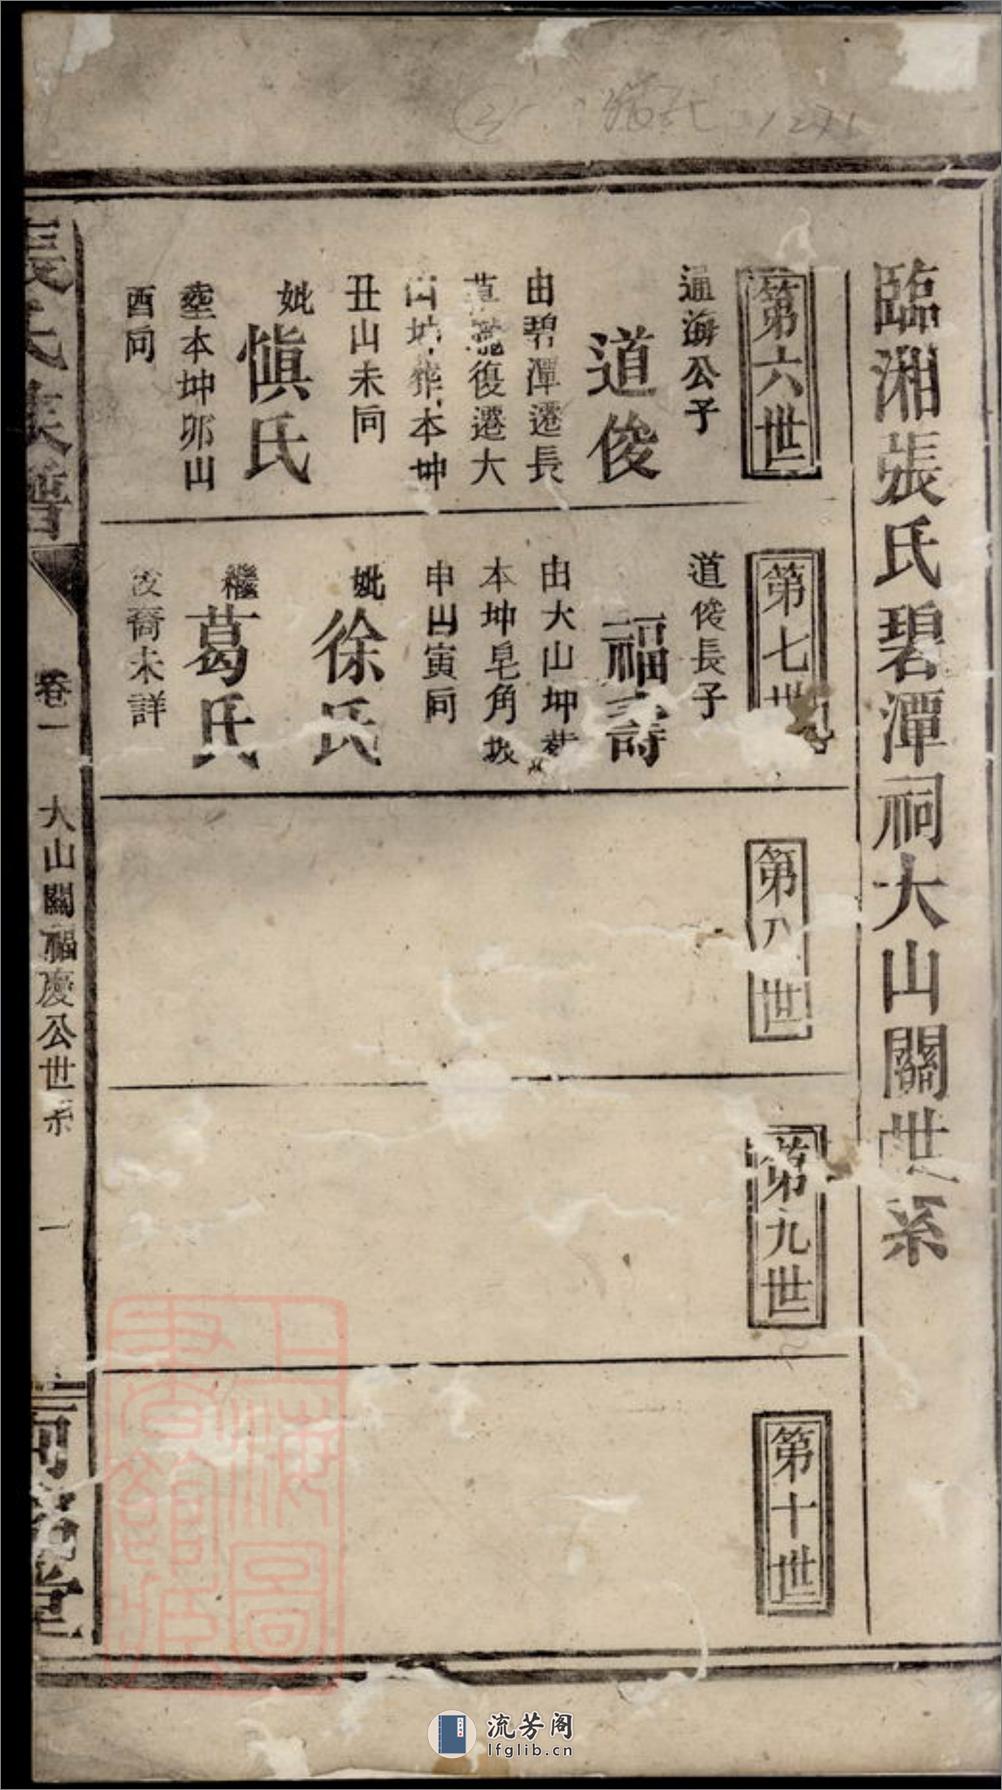 臨湘張氏碧潭祠大山關世系
第六世
通海公子
道俊
由碧潭遷長
復遷大
山坳葬本坤
丑山未向
妣
愼氏
塟本坤卯山
酉向
第七世
道俊長子
福壽
由大山坤塟
本坤皂角坂
申山寅向
妣
徐氏
繼
葛氏
後裔未詳
第八世
第九世
第十世
張氏族譜
卷一
大山關福慶公世系
一
堂
上海圖書館藏
流芳阁
lfglib.cn